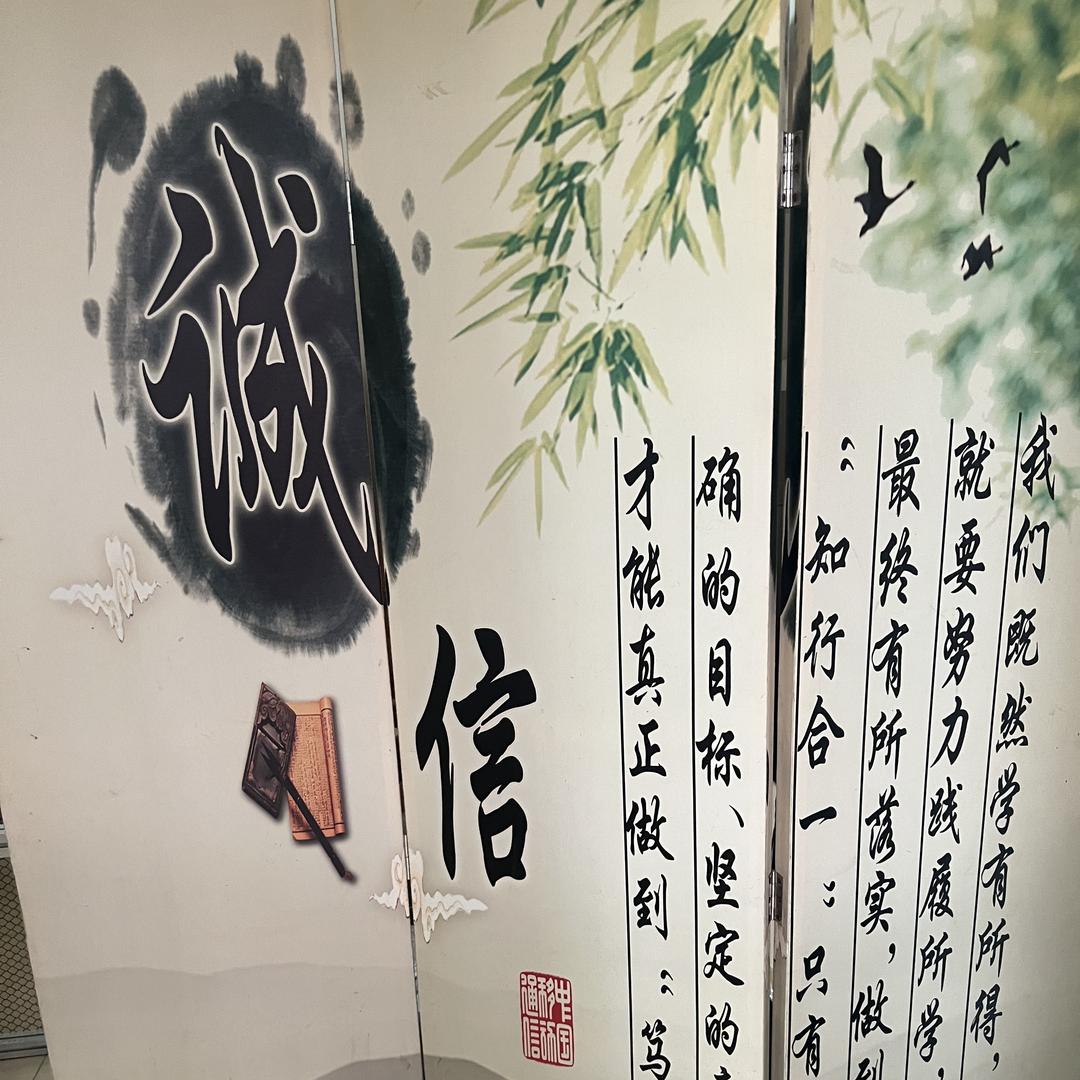 我们既然学有所得，
就要努力践履所学，
最终有所落实，做到
“知行合一”只有
确的目标、坚定的
才能真正做到“笃
诚
信
中国
移动
通信